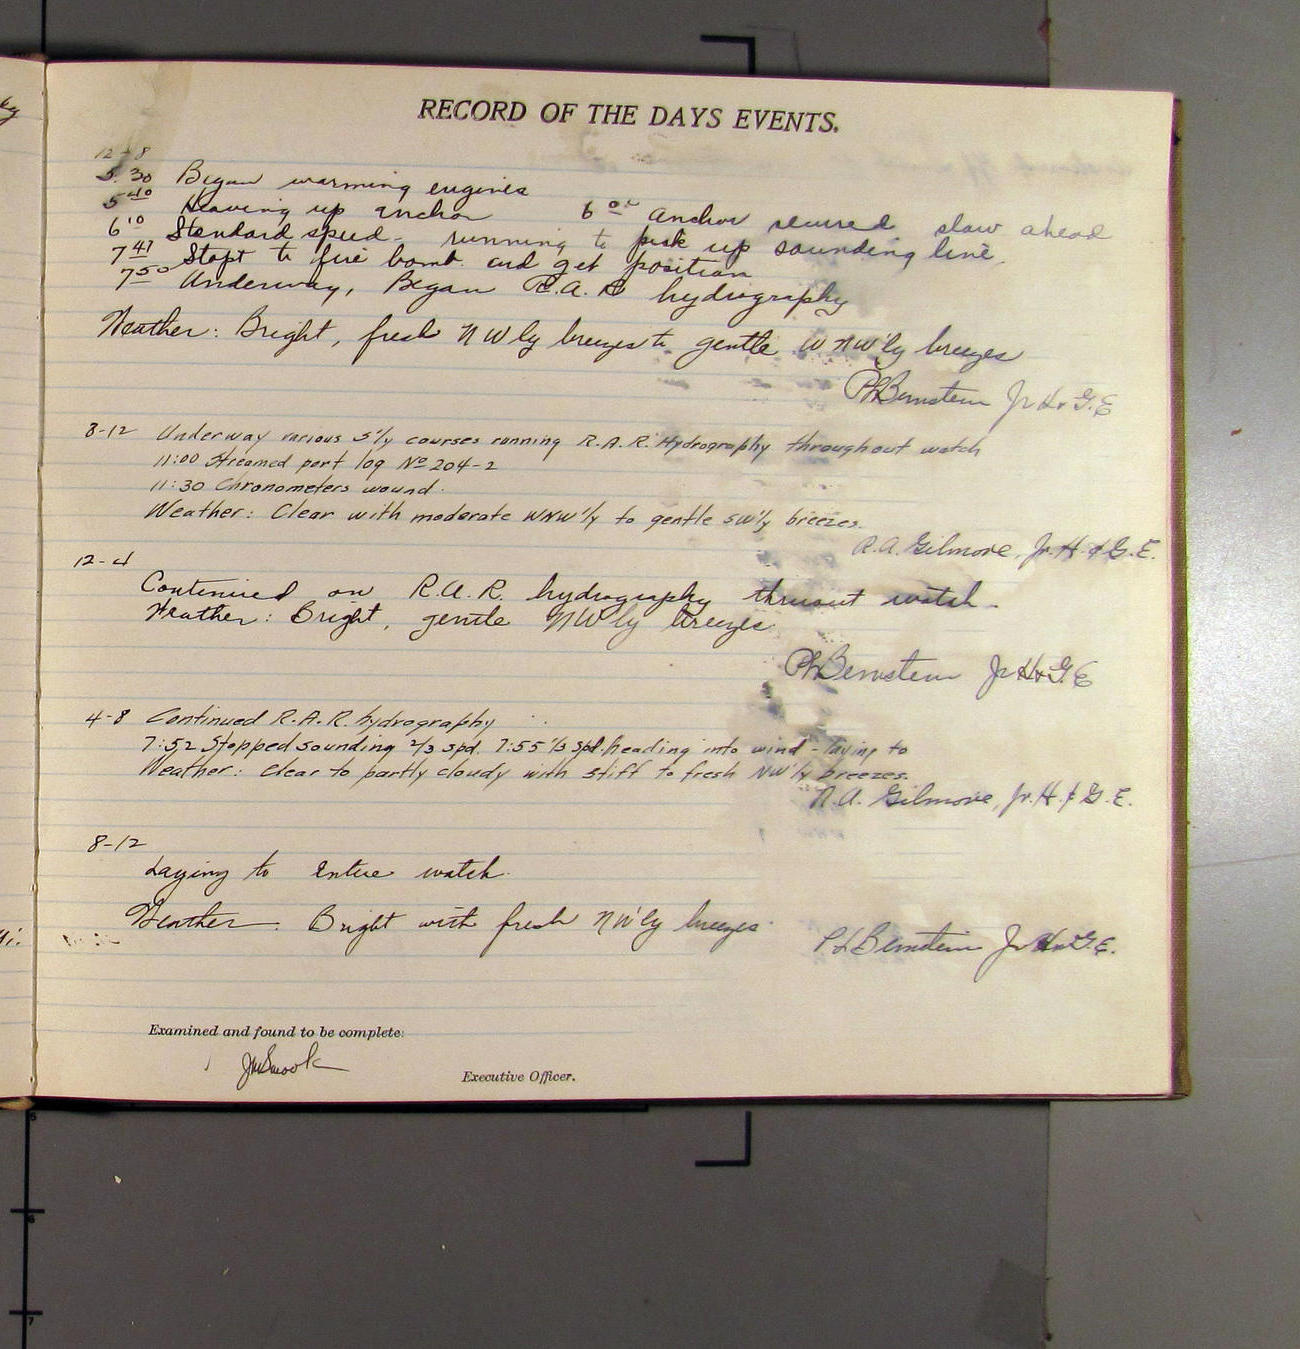 RECORD OF THE DAYS EVENTS.
12-8
5:30 Began warming engines
5 40 Heaving up anchor 6 00 anchor secured slow ahead
6 10 Standard speed - running to pick up sounding line.
7 47 Stopt to fire bomb and get position
7 50 Underway, Began R.A.R hydrography
Weather: Bright, fresh NW'ly breezes to gentle WNW'ly breezes
PLBernstein Jr H & G.E
8-12 Underway various S'ly courses running R.A.R. Hydrography throughout watch
11:00 Streamed port log No 204-2
11:30 Chronometers wound.
Weather: Clear with moderate WNW'ly to gentle SW'ly breezes.
R.A. Gilmore, Jr. H. & G.E.
12-4
Continued on R.A.R. hydrography thruout watch.
Weather: Bright, gentle NW'ly breezes
PLBernstein Jr H & G.E
4-8 Continued R.A.R. hydrography
7:52 Stopped sounding 2/3 spd. 7:55 1/3 spd. heading into wind - laying to
Weather: Clear to partly cloudy with stiff to fresh NW'ly breezes.
R.A. Gilmore, Jr. H. & G.E.
8-12
Laying to entire watch.
Weather Bright with fresh NW'ly breezes
PLBernstein Jr H & G.E.
Examined and found to be complete:
JMSmook
Executive Officer.
6
7